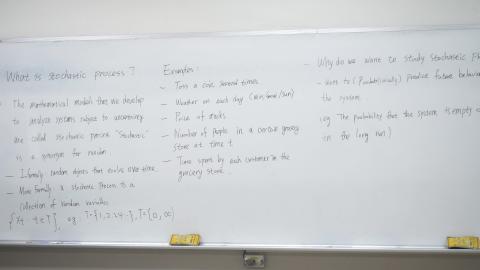 What is stochastic process?
The mathematical models that we develop
to analyze systems subject to uncertainty
are called stochastic process "stochastic"
is a synonym for random
- Informally random objects that evolve over time
- More formally: a stochastic process is a
collection of random variables
{Xt : t ∈ T}, eg: T={1,2,3,4...}, T=[0,∞)
Examples:
- Toss a coin several times
- Weather on each day (rain/snow/sun)
- Price of stocks
- Number of people in a certain grocery
store at time t.
- Time spent by each customer in the
grocery store.
- Why do we want to study stochastic
- Want to (Probabilistically) predict future behavior
the system.
(eg The probability that the system is empty
in the long run)